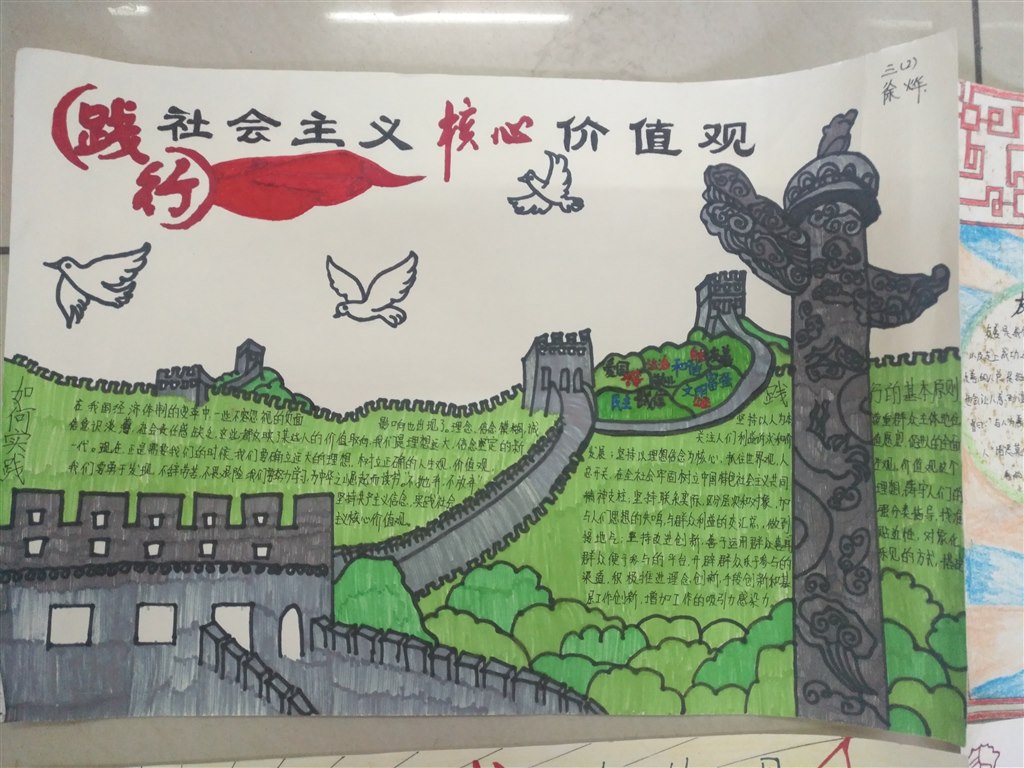 三(2)
徐烨
践行社会主义核心价值观
如何实践
在我国经济体制的变革中一些不容忽视的负面
影响也出现了。理念、信念朦胧,诚
信意识淡薄,社会责任感缺乏,这些都反映了某些人的价值取向,我们是理想远大、信念坚定的新
一代。现在正是需要我们的时候,我们要确立远大的理想,和树立正确的人生观,价值观。
我们要勇于发现,不辞劳苦,不畏艰险,我们要努力学习,为中华之崛起而读书。不抛弃,不放弃!
坚持共产主义信念,实践社会主
义核心价值观。
爱国
法治
友善
和谐
敬业
民主
诚信
文明
践行的基本原则
坚持以人为本
尊重群众主体地位
关注人们利益诉求和价
值愿望,促进人的全面
发展;坚持以理想信念为核心,抓住世界观、人
生观、价值观这个
总开关,在全社会牢固树立中国特色社会主义共同
理想,铸牢人们的
精神支柱;坚持联系实际,区分层次和对象,加
强分类指导,找准
与人们思想的共鸣点、与群众利益的交汇点,做到
贴近性、对象化、
接地气;坚持改进创新,善于运用群众喜闻
乐见的方式,搭建
群众便于参与的平台,开辟群众乐于参与的
渠道,积极推进理念创新、手段创新和基
层工作创新,增加工作的吸引力感染力。